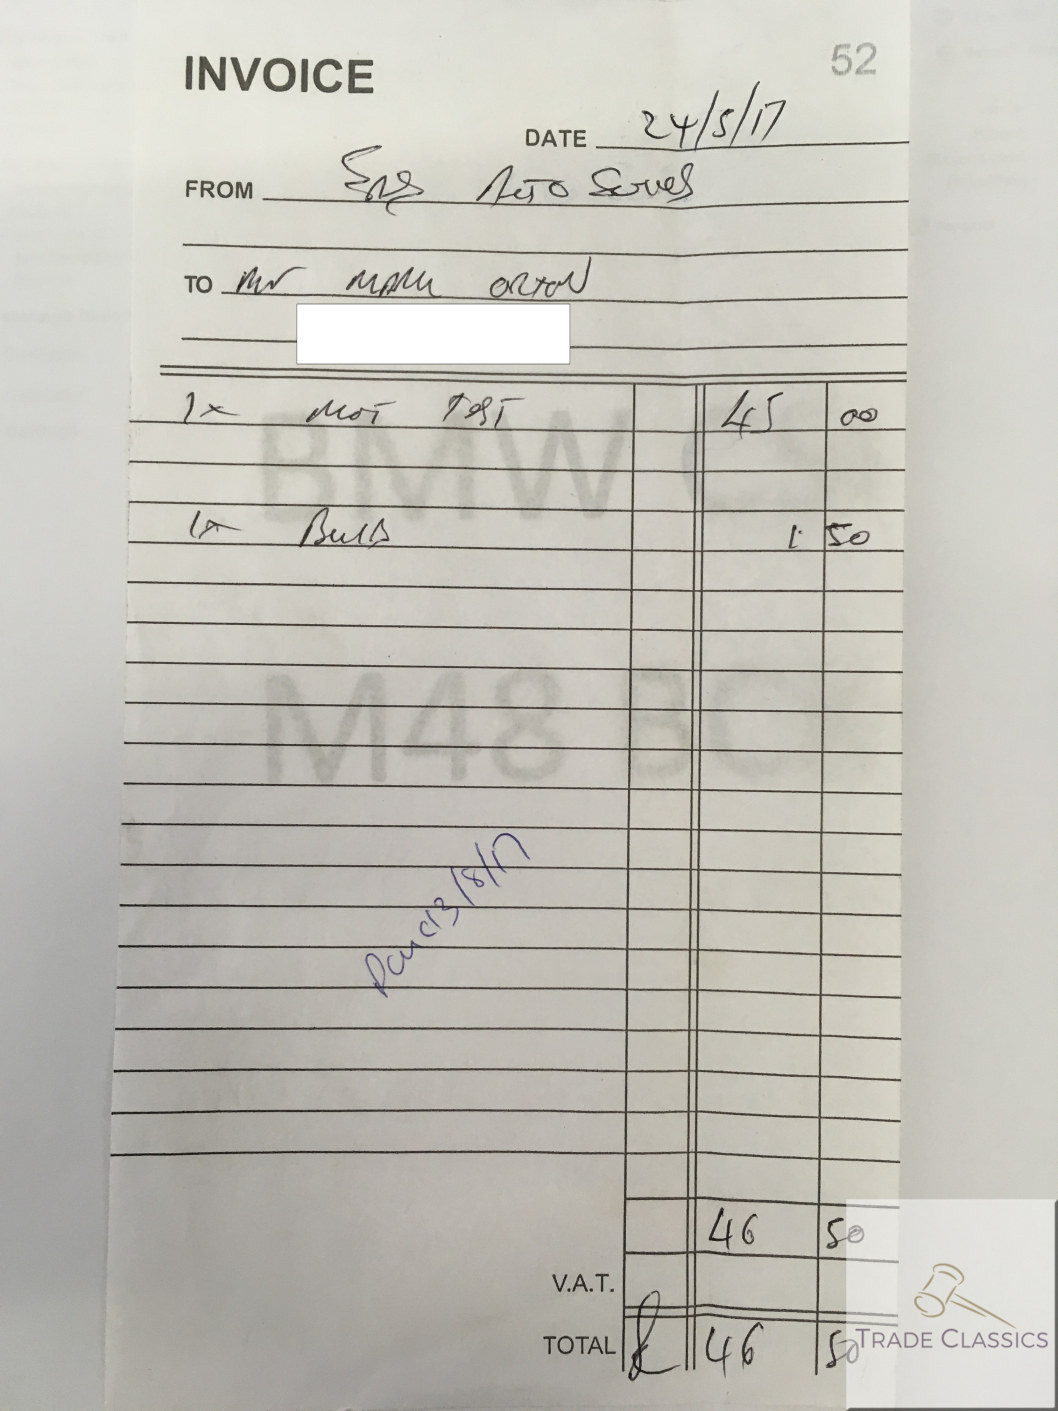 INVOICE
52
DATE 24/5/17
FROM Auto
TO Mr MARK ORTON
1x MOT TEST 45 00
BMW
1x Bulb 1: 50
M48 BO
13/8/17
46 50
V.A.T.
TOTAL £ 46 50
TRADE CLASSICS